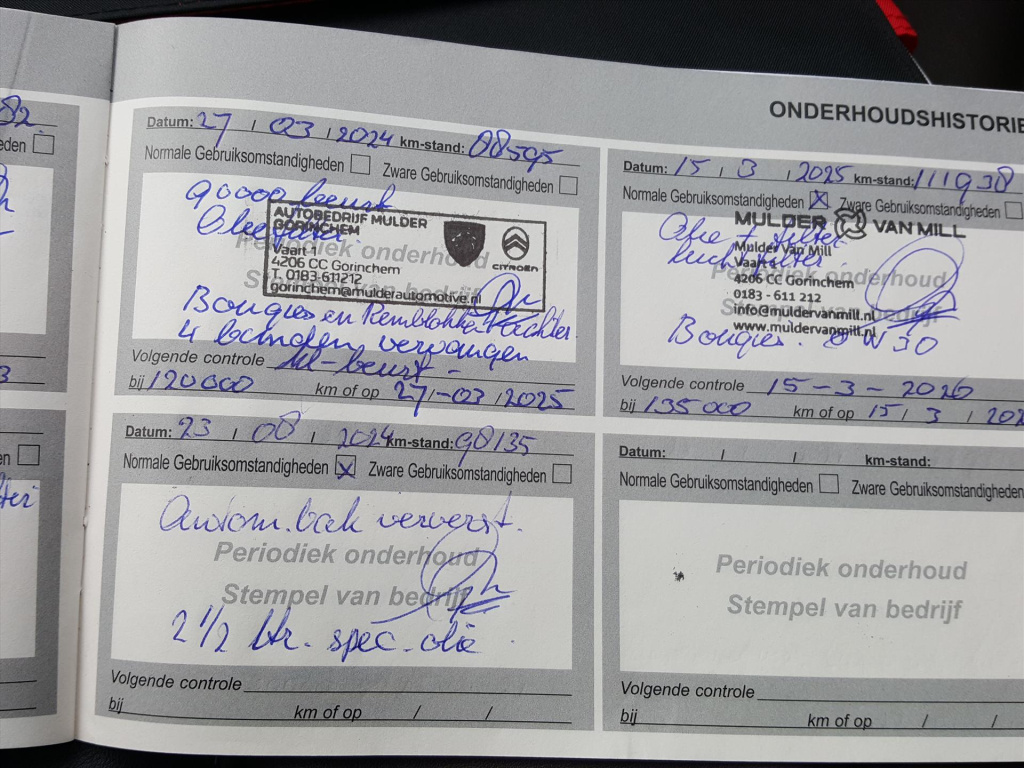 82
den
3
en
ONDERHOUDSHISTORIE
Datum: 27 / 03 / 2024 km-stand: 88595
Normale Gebruiksomstandigheden Zware Gebruiksomstandigheden
90000 beurt
AUTOBEDRIJF MULDER
GORINCHEM
Vaart 1
4206 CC Gorinchem
T. 0183-611212
gorinchem@mulderautomotive.nl
CITROËN
Periodiek onderhoud
Bougies en Remblokken achter
4 banden vervangen
Volgende controle beurt -
bij 120000 km of op 27 / -03 / 2025
Datum: 15 / 3 / 2025 km-stand: 111938
Normale Gebruiksomstandigheden X Zware Gebruiksomstandigheden
Olie + filter
luchtfilter
MULDER VAN MILL
Mulder Van Mill
Vaart
4206 CC Gorinchem
0183 - 611 212
info@muldervanmill.nl
www.muldervanmill.nl
Periodiek onderhoud
Stempel van bedrijf
Bougies. 0W30
Volgende controle 15-3-2026
bij 135000 km of op 15 / 3 / 202
Datum: 23 / 08 / 2024 km-stand: 98135
Normale Gebruiksomstandigheden X Zware Gebruiksomstandigheden
Autom. bak ververst.
Periodiek onderhoud
Stempel van bedrijf
2 1/2 ltr. spec. olie
Volgende controle
bij km of op / /
Datum: / / km-stand:
Normale Gebruiksomstandigheden Zware Gebruiksomstandigheden
Periodiek onderhoud
Stempel van bedrijf
Volgende controle
bij km of op / /